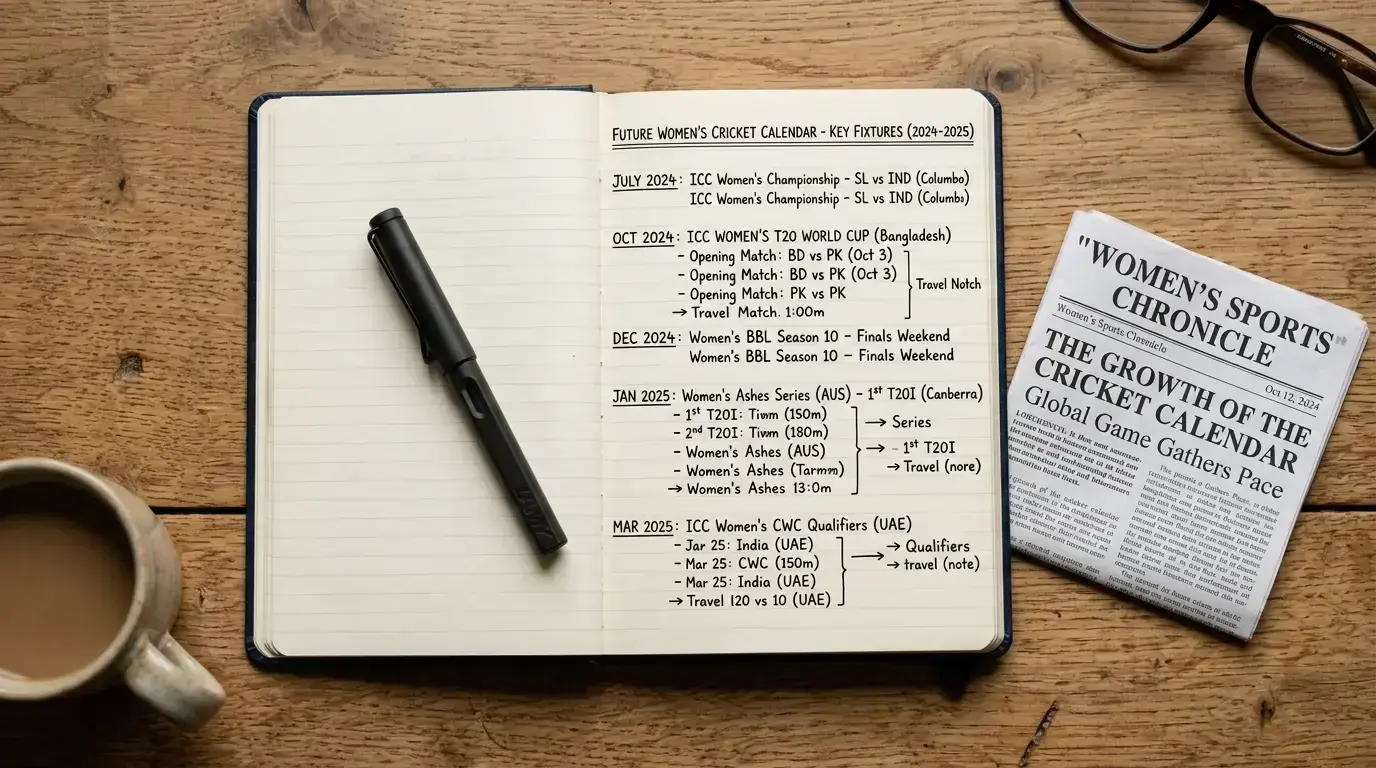 FUTURE WOMEN'S CRICKET CALENDAR - KEY FIXTURES (2024-2025)
JULY 2024: ICC Women's Championship - SL vs IND (Columbo)
ICC Women's Championship - SL vs IND (Columbo)
OCT 2024: ICC WOMEN'S T20 WORLD CUP (Bangladesh)
- Opening Match: BD vs PK (Oct 3)
- Opening Match: BD vs PK (Oct 3)
- Opening Match: PK vs PK
→ Travel Match. 1:00m
Travel Notch
DEC 2024: Women's BBL Season 10 - Finals Weekend
Women's BBL Season 10 - Finals Weekend
JAN 2025: Women's Ashes Series (AUS) - 1st T20I (Canberra)
- 1st T20I: Tiwm (150m)
- 2nd T20I: Tiwm (180m)
- Women's Ashes (AUS)
- Women's Ashes (Tarmm)
→ Women's Ashes 13:0m
→ Series
→ - 1st T20I
→ Travel (nore)
MAR 2025: ICC Women's CWC Qualifiers (UAE)
- Jar 25: India (UAE)
- Mar 25: CWC (150m)
- Mar 25: India (UAE)
→ Travel I20 vs 10 (UAE)
→ Qualifiers
→ travel (note)
"WOMEN'S SPORTS"
CHRONICLE
Women's Sports Chronicle
Oct 12, 2024
THE GROWTH OF THE
CRICKET CALENDAR
Global Game Gathers Pace